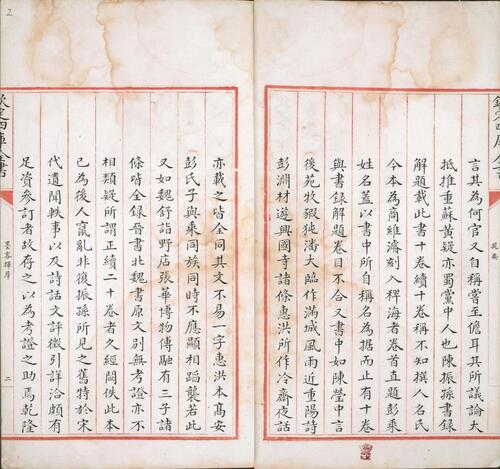 欽定四庫全書
提要
言其為何官又自稱嘗至儋耳其所議論大
抵推重蘇黄疑亦蜀黨中人也陳振孫書録
解題載此書十卷續十卷稱不知撰人名氏
今本為商維濬刻入稗海者卷首直題彭乘
姓名蓋以書中所自稱名為据而止有十卷
與書録解題卷目不合又書中如陳瑩中言
後苑牧豭㹠潘大臨作滿城風雨近重陽詩
彭淵材遊興國寺諸條惠洪所作冷齋夜話
亦載之皆全同其文不易一字惠洪本髙安
彭氏子與乘同族同時不應顯相蹈襲若此
又如魏舒詣野店張華博物傅融有三子諸
條皆全録晉書北魏書原文别無考證亦不
相類疑所謂正續二十卷者久經闕佚此本
已為後人竄亂非復振孫所見之舊特於宋
代遺聞軼事以及詩話文評徴引詳洽頗有
足資參訂者故存之以為考證之助焉乾隆
欽定四庫全書
墨客揮犀
二
2